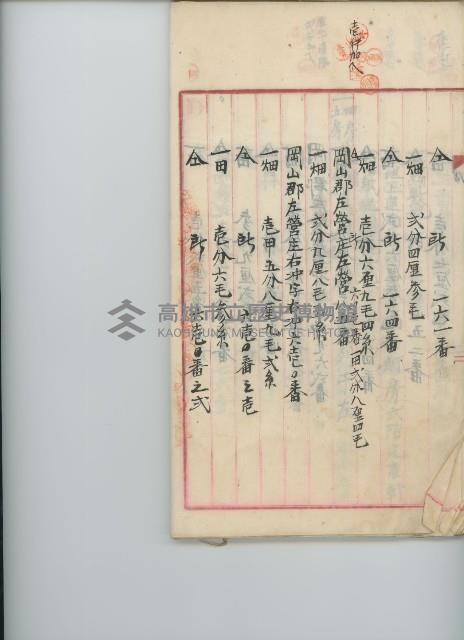 壱行加入
仝 所 一六一番
一畑 弐分四厘参毛
仝 所 一六四番
一畑 壱分六厘九毛四糸
仝 所 六六番 一甲弐分八厘四毛
岡山郡左營庄左營 五番
一畑 弐分九厘八毛 糸
岡山郡左營庄右冲字右冲六壱〇番
一畑 壱甲五分八厘九毛弐糸
仝 所 六壱〇番之壱
一田 壱分六毛参糸
仝 所 六壱〇番之弐
高雄市立歷史博物館
KAOHSIUNG MUSEUM OF HISTORY